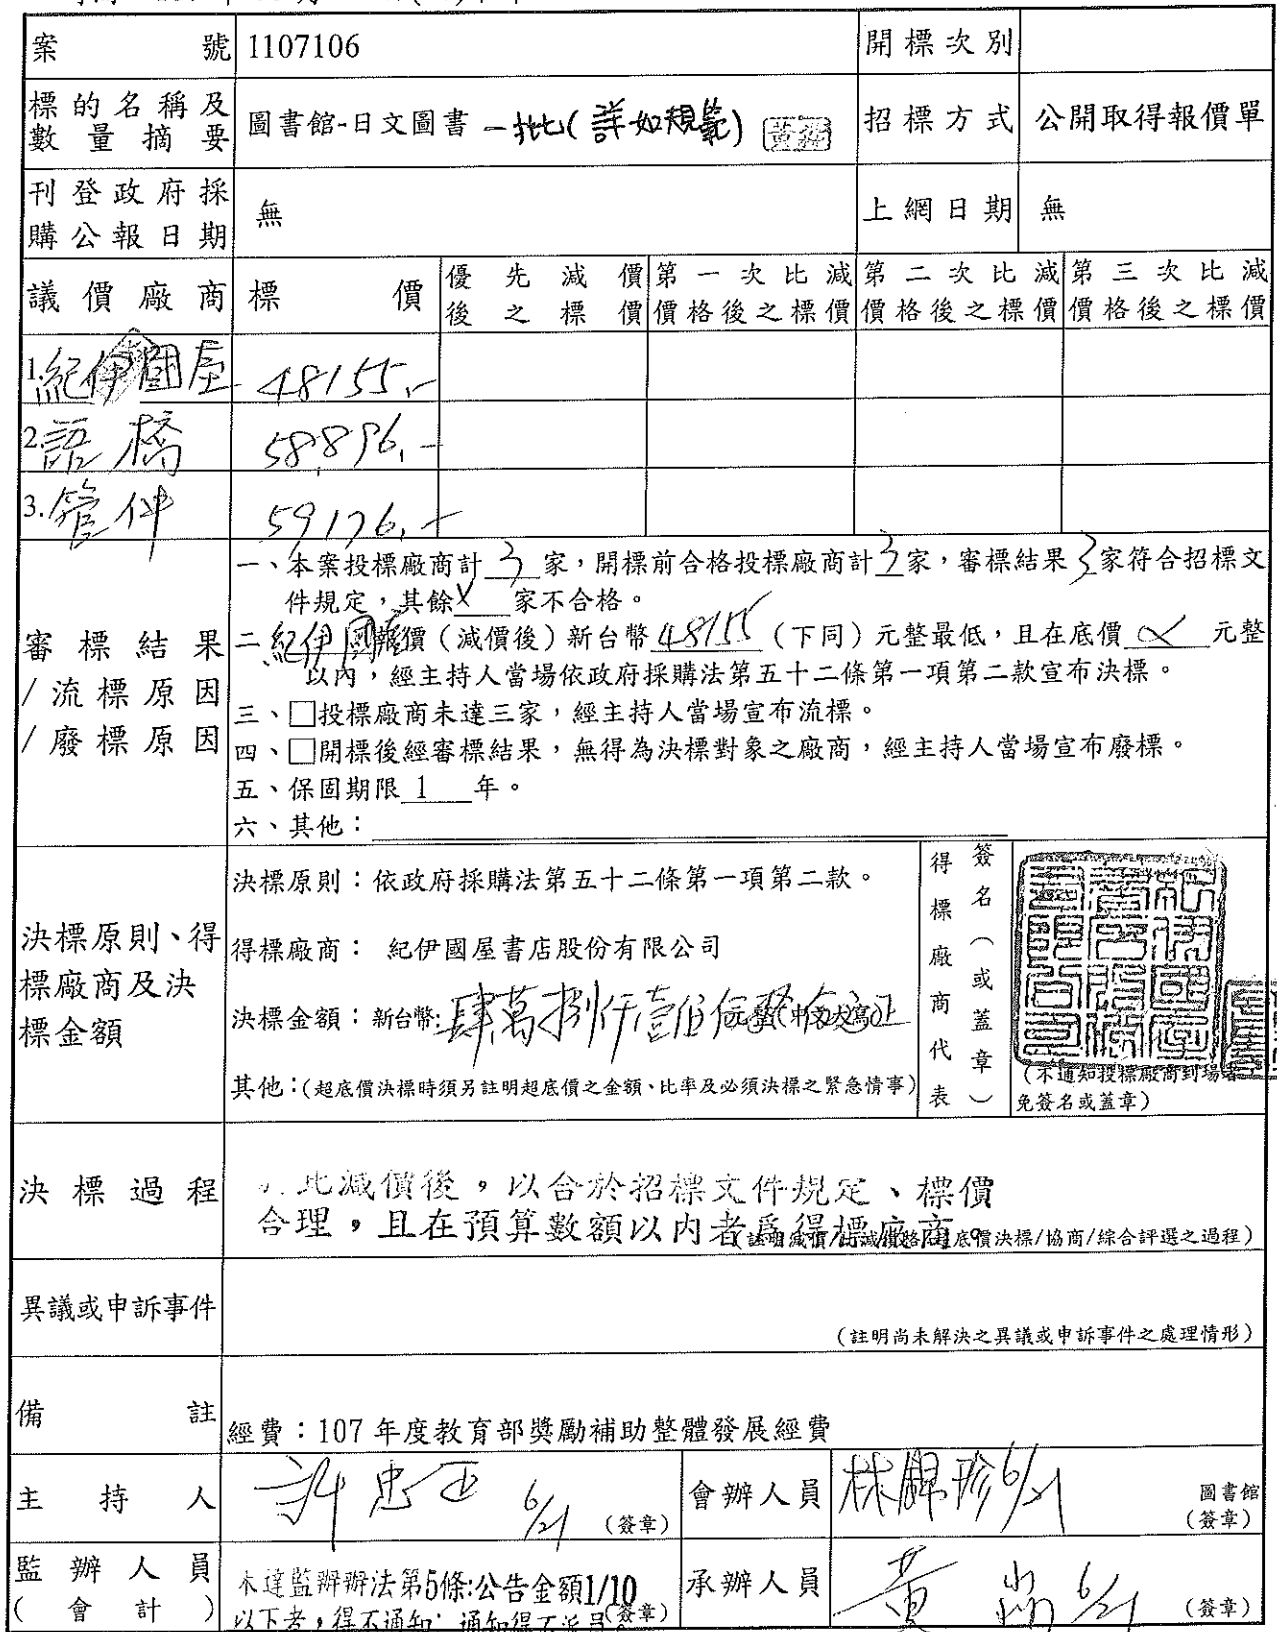 案號 1107106 開標次別
標的名稱及數量摘要 圖書館-日文圖書 一批(詳如規範) 招標方式 公開取得報價單
刊登政府採購公報日期 無 上網日期 無
議價廠商 標價 優先減價後之標價 第一次比減價格後之標價 第二次比減價格後之標價 第三次比減價格後之標價
1.紀伊國屋 48155.-
2.語橋 58,896.-
3.管仲 59176.-
審標結果/流標原因/廢標原因
一、本案投標廠商計 3 家,開標前合格投標廠商計 3 家,審標結果 3 家符合招標文
件規定,其餘 X 家不合格。
二 紀伊國屋 報價(減價後)新台幣 48155 (下同)元整最低,且在底價 元整
以內,經主持人當場依政府採購法第五十二條第一項第二款宣布決標。
三、□投標廠商未達三家,經主持人當場宣布流標。
四、□開標後經審標結果,無得為決標對象之廠商,經主持人當場宣布廢標。
五、保固期限 1 年。
六、其他:
決標原則、得標廠商及決標金額
決標原則:依政府採購法第五十二條第一項第二款。
得標廠商: 紀伊國屋書店股份有限公司
決標金額:新台幣:肆萬捌仟壹佰伍拾伍元正
其他:(超底價決標時須另註明超底價之金額、比率及必須決標之緊急情事)
得標廠商代表
簽名(或蓋章)
(不通知投標廠商到場者
免簽名或蓋章)
決標過程
比減價後,以合於招標文件規定、標價
合理,且在預算數額以內者為得標廠商。
(註明減價/比減價格/超底價決標/協商/綜合評選之過程)
異議或申訴事件
(註明尚未解決之異議或申訴事件之處理情形)
備註 經費:107 年度教育部獎勵補助整體發展經費
主持人 6/21 (簽章) 會辦人員 林錦珍 6/21 圖書館
(簽章)
監辦人員(會計) 未達監辦辦法第5條:公告金額1/10
以下者,得不通知;通知得不派員。(簽章)
承辦人員 黃 6/21 (簽章)